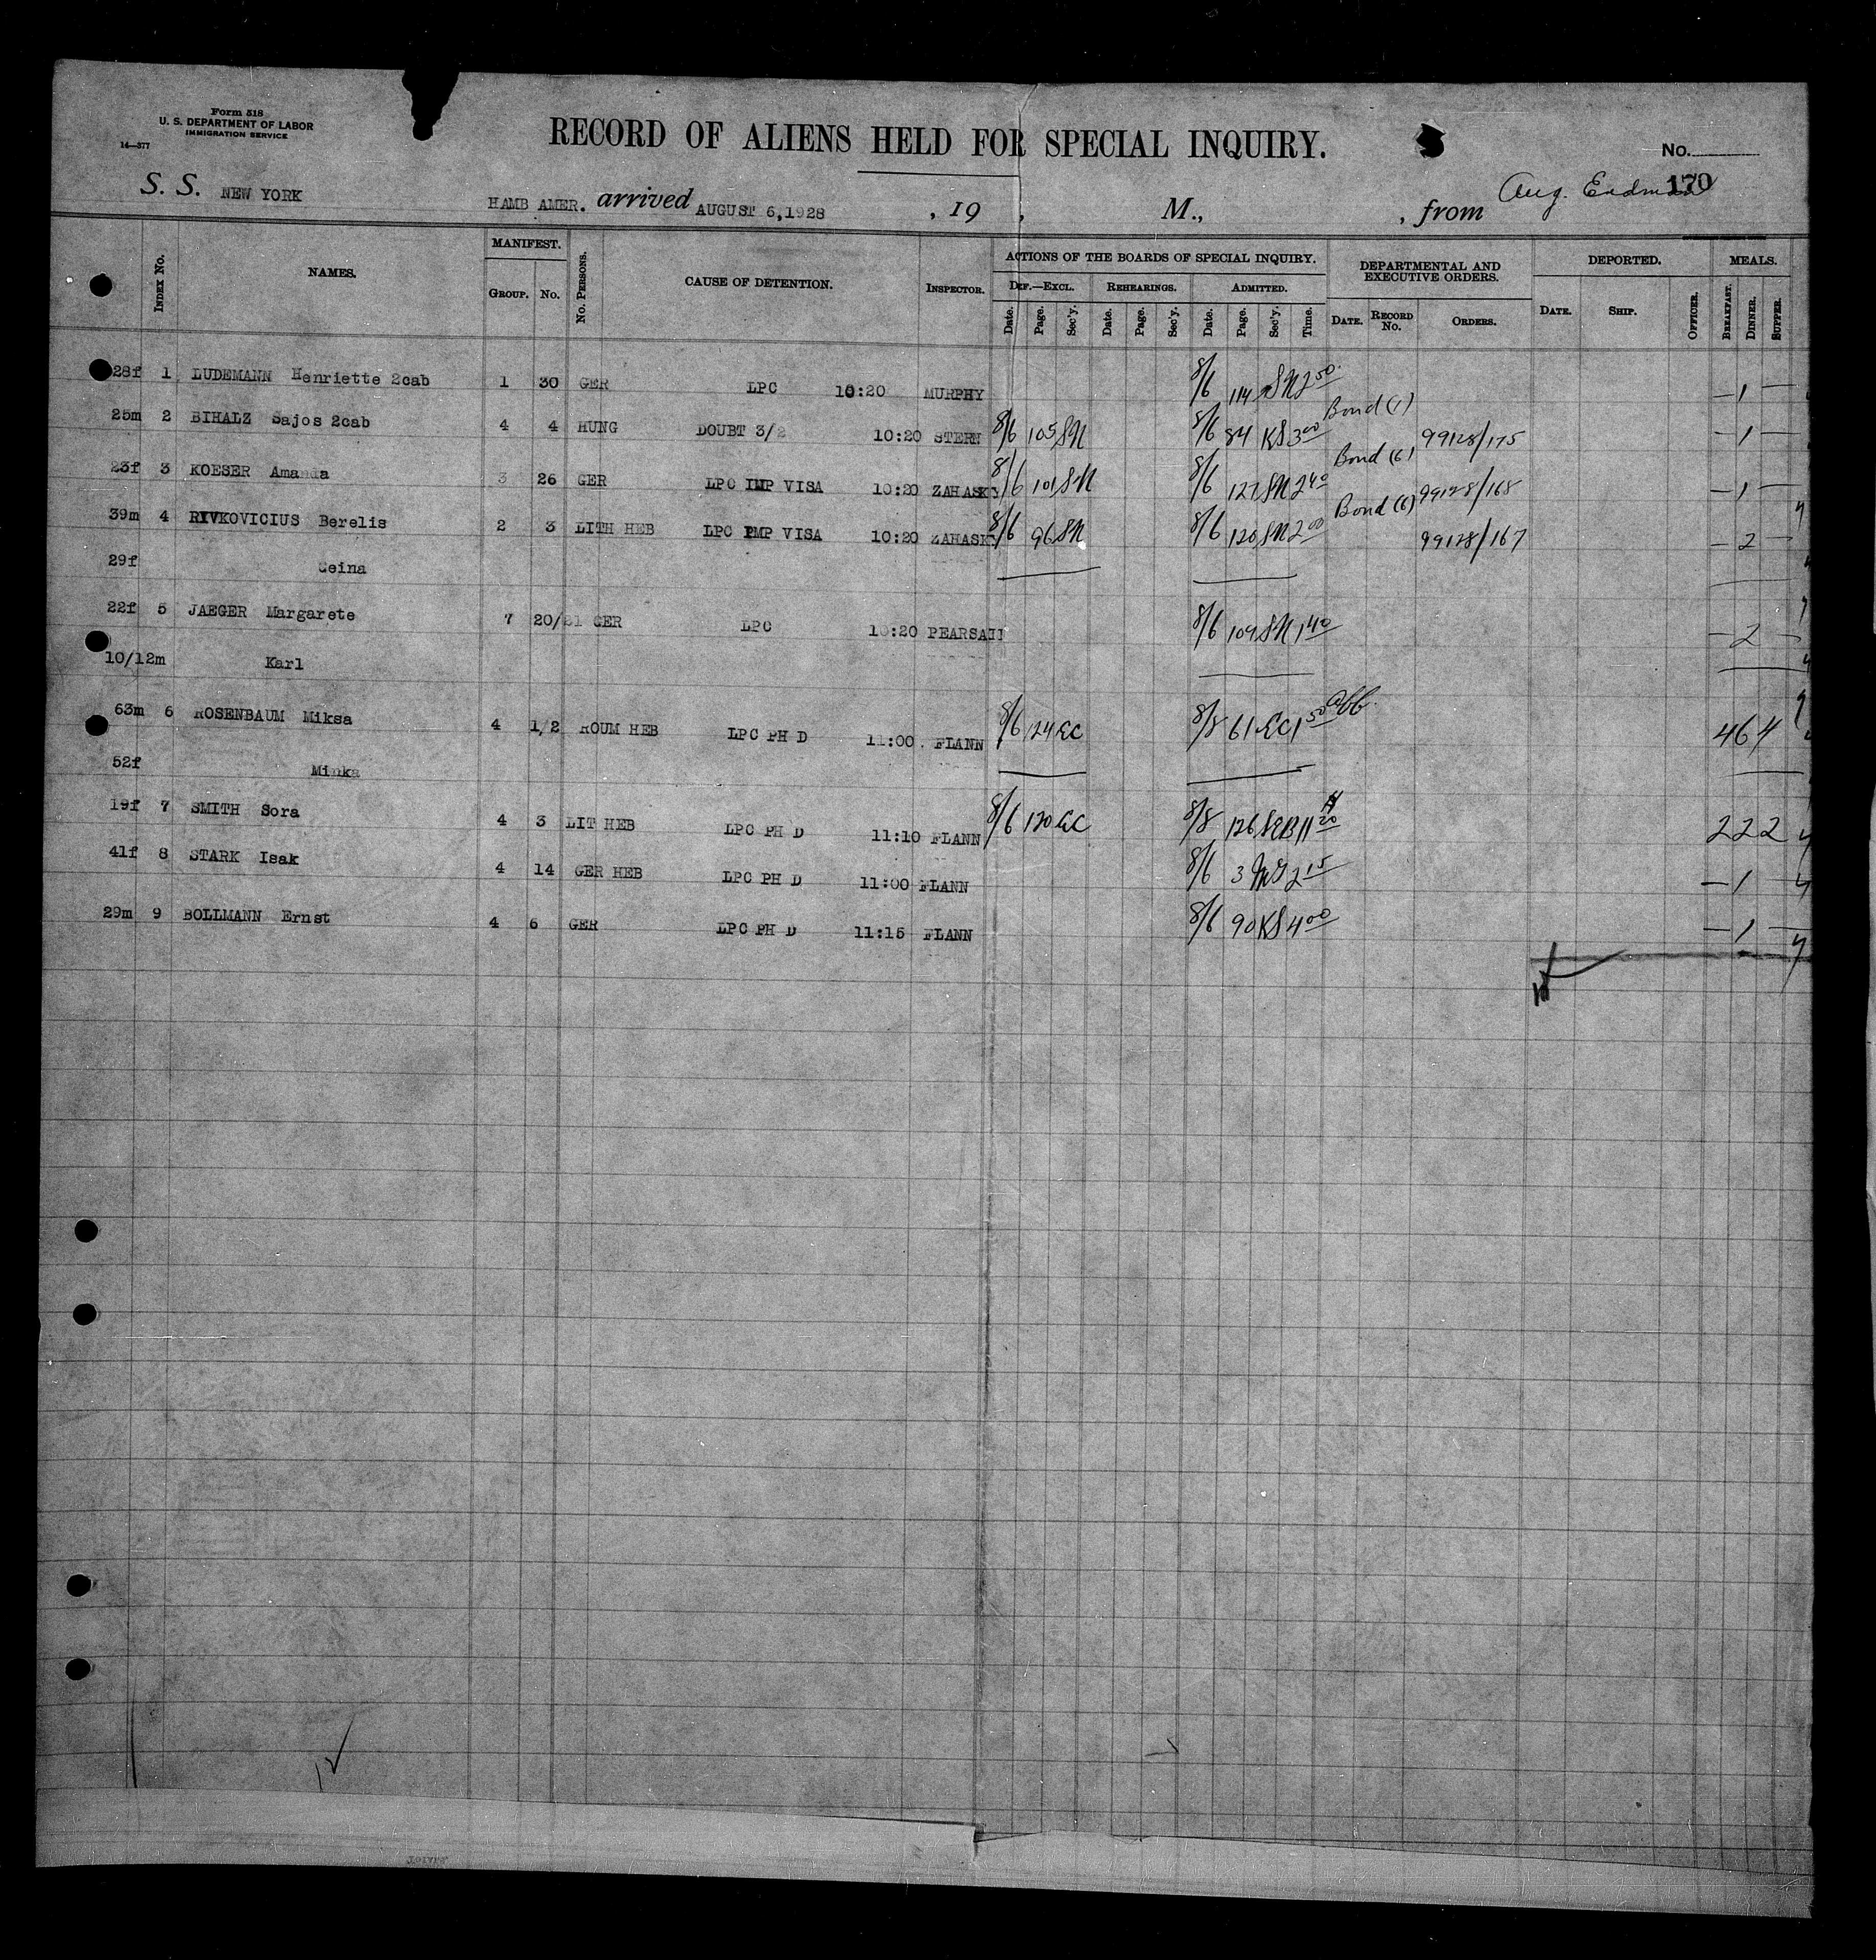 Form 518
U. S. DEPARTMENT OF LABOR
IMMIGRATION SERVICE
14—377
RECORD OF ALIENS HELD FOR SPECIAL INQUIRY.
No.
170
S. S. NEW YORK HAMB AMER. arrived AUGUST 6,1928 , 19 , M., , from Aug.
Index No. NAMES. MANIFEST. Group. No. No. Persons. CAUSE OF DETENTION. Inspector. ACTIONS OF THE BOARDS OF SPECIAL INQUIRY. DEPARTMENTAL AND EXECUTIVE ORDERS. DEPORTED. MEALS.
Def.—Excl. Rehearings. Admitted.
Date. Page. Sec'y. Date. Page. Sec'y. Date. Page. Sec'y. Time. Date. Record No. Orders. Date. Ship. Officer. Breakfast. Dinner. Supper.
28f 1 LUDEMANN Henriette 2cab 1 30 GER LPC 10:20 MURPHY 8/6 114 SN 2 00 — 1 —
25m 2 BIHALZ Sajos 2cab 4 4 HUNG DOUBT 3/2 10:20 STERN 8/6 105 SN 8/6 84 KS 3 00 Bond (1) 99128/175 — 1 —
23f 3 KOESER Amanda 3 26 GER LPC IMP VISA 10:20 ZAHASKY 8/6 101 SN 8/6 127 SN 2 40 Bond (6) 99128/168 — 1 —
39m 4 RIVKOVICIUS Berelis 2 3 LITH HEB LPC IMP VISA 10:20 ZAHASKY 8/6 96 SN 8/6 120 SN 2 00 Bond (6) 99128/167 — 2 —
29f Seina
22f 5 JAEGER Margarete 7 20/21 GER LPC 10:20 PEARSALL 8/6 109 SN 1 40 — 2 —
10/12m Karl
63m 6 ROSENBAUM Miksa 4 1,2 ROUM HEB LPC PH D 11:00 FLANN 8/6 124 EC 8/8 61 EC 1 50 4 6 4
52f Minka
19f 7 SMITH Sora 4 3 LIT HEB LPC PH D 11:10 FLANN 8/6 120 EC 8/8 126 SEB 11 20 2 2 2
41f 8 STARK Isak 4 14 GER HEB LPC PH D 11:00 FLANN 8/6 3 MG 2 15 — 1 —
29m 9 BOLLMANN Ernst 4 6 GER LPC PH D 11:15 FLANN 8/6 90 KS 4 00 — 1 —
12